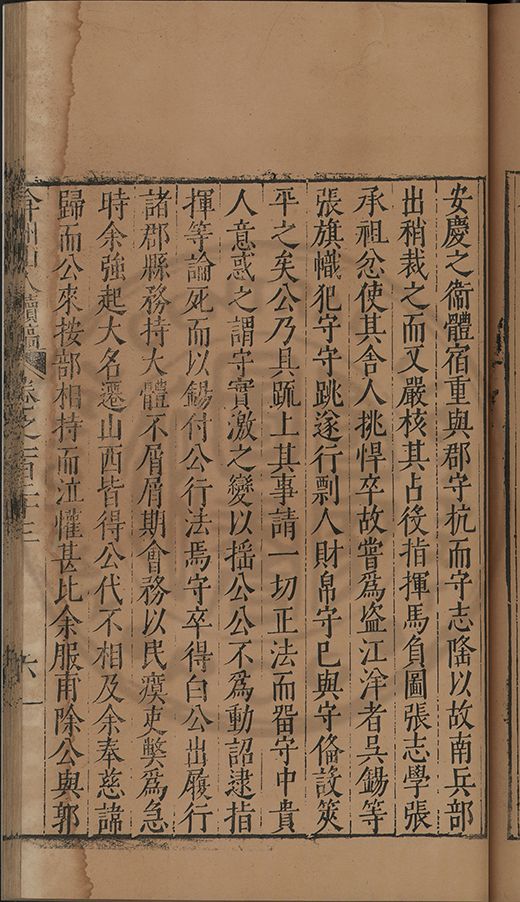 安慶之衞體宿重與郡守抗而守志隆以故南兵部
出稍裁之而又嚴核其占役指揮馬負圖張志學張
承祖忿使其舍人挑悍卒故嘗爲盜江洋者吳錫等
張旗幟犯守守跳遂行剽人財帛守已與守俻設筴
平之矣公乃具䟽上其事請一切正法而畱守中貴
人意惑之謂守實激之變以揺公公不爲動詔逮指
揮等論死而以錫付公行法焉守卒得白公出履行
諸郡縣務持大體不屑屑期會務以民瘼吏弊爲急
時余強起大名遷山西皆得公代不相及余奉慈諱
歸而公來按部相持而泣懽甚比余服甫除公與郭
弇州山人續稿 卷之一百二十三 六